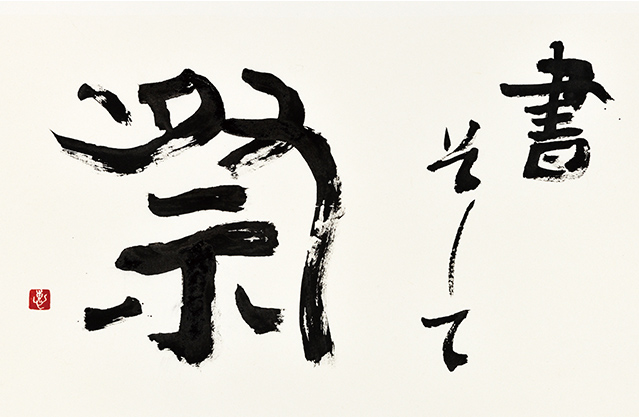 書
そして
祭